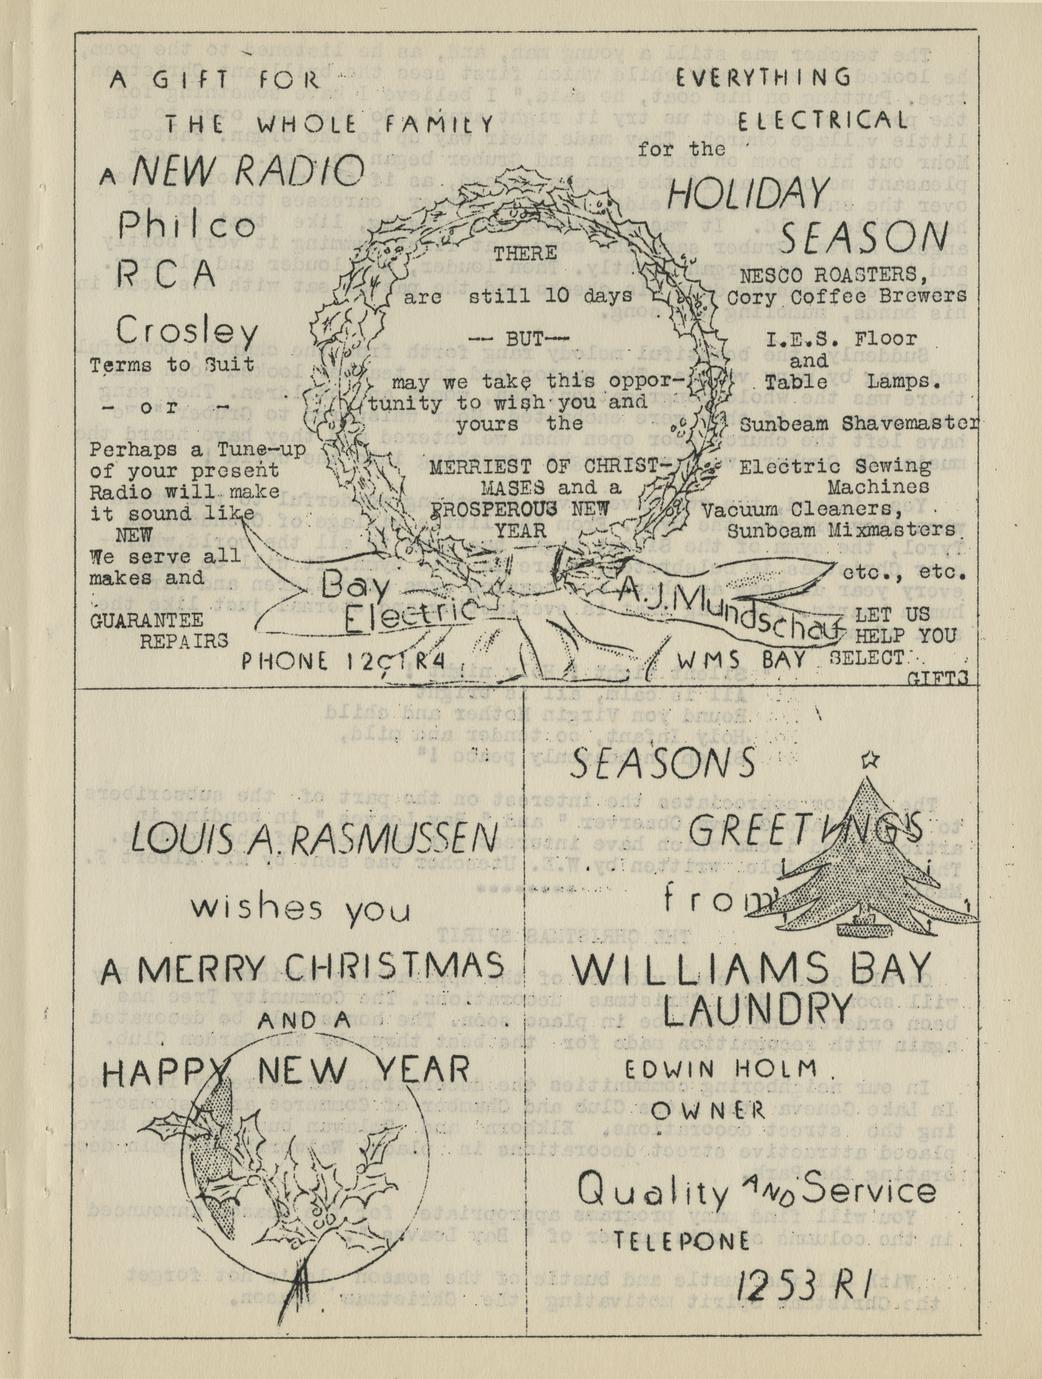 A GIFT FOR
THE WHOLE FAMILY
A NEW RADIO
Philco
RCA
Crosley
Terms to Suit
- or -
Perhaps a Tune-up
of your present
Radio will make
it sound like
NEW
We serve all
makes and
GUARANTEE
REPAIRS
THERE
are still 10 days
-- BUT--
may we take this oppor-
tunity to wish you and
yours the
MERRIEST OF CHRIST-
MASES and a
PROSPEROUS NEW
YEAR
EVERYTHING
ELECTRICAL
for the
HOLIDAY
SEASON
NESCO ROASTERS,
Cory Coffee Brewers
I.E.S. Floor
and
Table Lamps.
Sunbeam Shavemaster
Electric Sewing
Machines
Vacuum Cleaners,
Sunbeam Mixmasters
etc., etc.
LET US
HELP YOU
SELECT
GIFTS
Bay
Electric
A.J. Mundschau
PHONE R4
WMS BAY
LOUIS A. RASMUSSEN
wishes you
A MERRY CHRISTMAS
AND A
HAPPY NEW YEAR
SEASONS
GREETINGS
from
WILLIAMS BAY
LAUNDRY
EDWIN HOLM
OWNER
Quality AND Service
TELEPONE
1253 R1